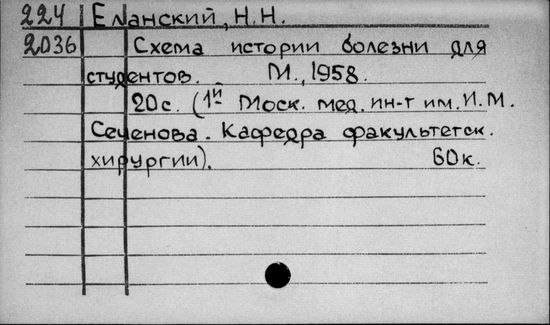 224 Еланский, Н.Н.
2036 Схема истории болезни для
студентов. М., 1958.
20с. (1й Моск. мед. ин-т им. И.М.
Сеченова. Кафедра факультетск.
хирургии). 60к.